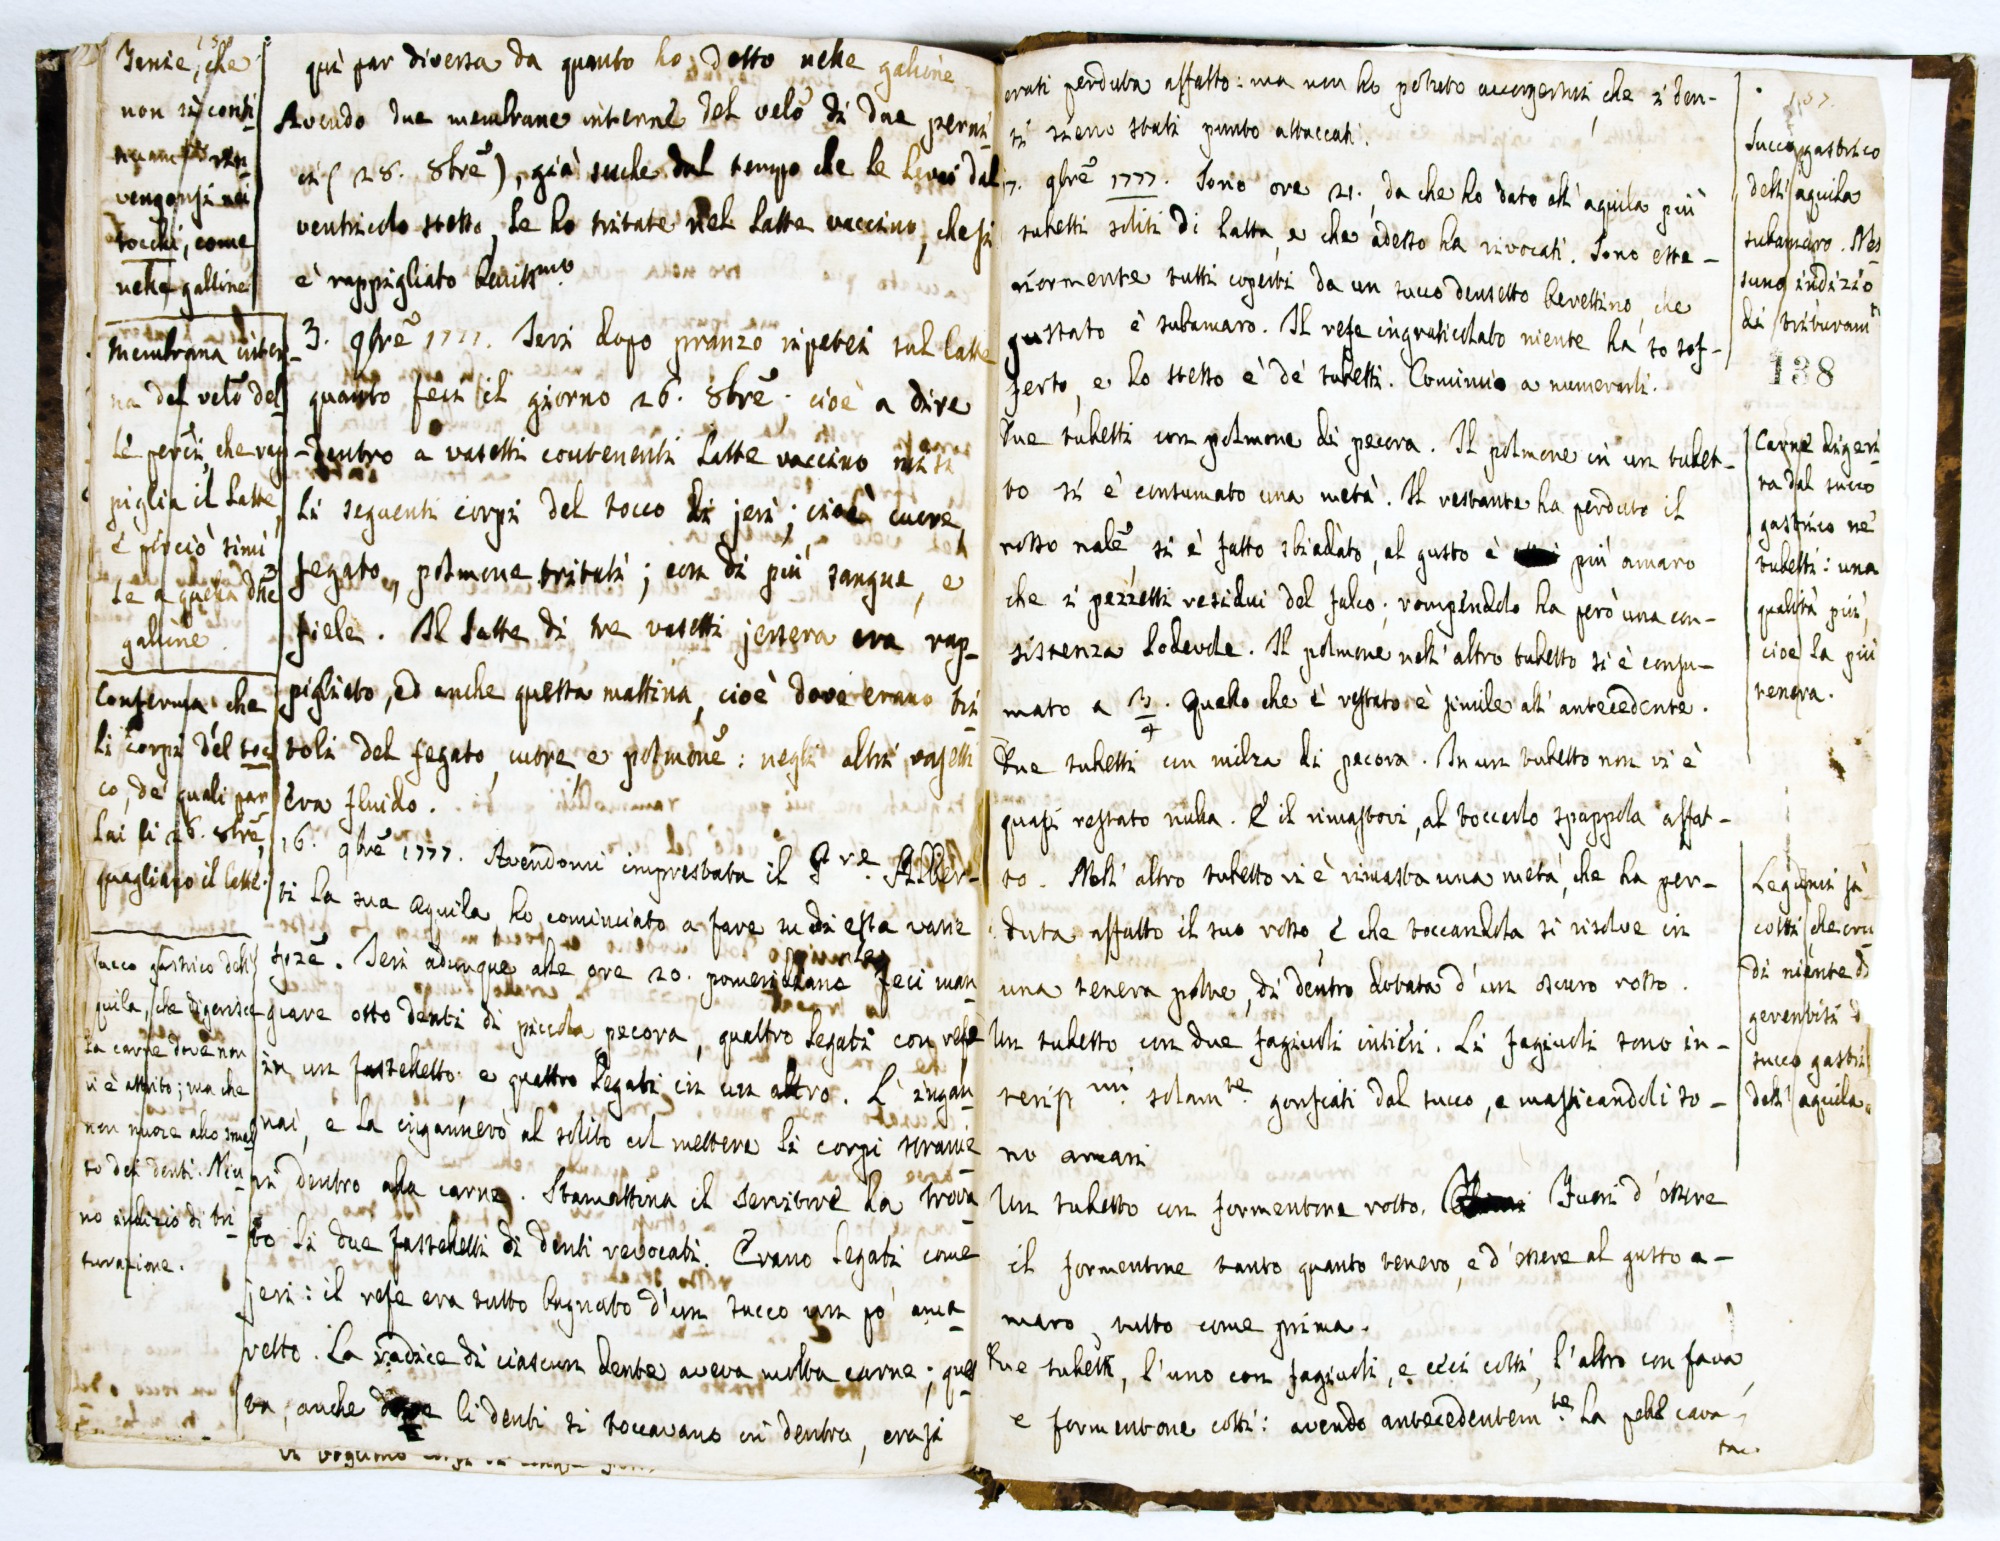 Senze, che
non si conti
vengonsi nei
tocchi, come
nelle galline
Membrana inter
na del vel̃o del
le perci, che rap
piglia il latte,
è perciò simi
le a quella dlle
galline.
Conferma che
li corpi del toc
co, de' quali par
lai li 26. 8brẽ,
quagliano il latte.
Succo gastrico dell'
quila, che digerisce
la carne dove non
vi è attrito; ma che
non nuoce allo smal
to dei denti. Niu-
no indizio di tri
turazione.
quì par diversa da quanto ho detto nelle galline
Avendo due membrane interne del velõ di due perni
ci (28. 8brẽ), già secche dal tempo che le levai dal
ventricolo stesso, le ho tritate nel latte vaccino, che si
è rappigliato beniss.mo
3. 9brẽ 1777. Ieri dopo pranzo ripetei sul latte
quanto feci il giorno 26. 8brẽ; cioè a dire
dentro a vasetti contenenti latte vaccino misi
li seguenti corpi del tocco di jeri; cioè cuore,
fegato, polmone tritati; con di più sangue, e
fiele. Il latte di tre vasetti jersera era rap-
pigliato, ed anche questa mattina, cioè dove erano tri
toli del fegato, cuore, e polmonẽ: negli altri vasetti
era fluido.
16. 9brẽ 1777. Avendomi imprestata il Alber-
ti la sua aquila ho cominciato a fare su di essa varie
spzẽ. Ieri adunque alle ore 20. pomeridiane feci man
giare otto denti di piccola pecora, quattro legati con refe
in un fastelletto, e quattro legati in un altro. L'ingan
nai, e la ingannerò al solito col mettere li corpi stranie
ri dentro alla carne. Stamattina il servitore ha trova
to li due fastelletti di denti revocati. Erano legati come
jeri: il refe era tutto bagnato d'un succo un po' ama
retto. La radice di ciascun dente aveva molta carne; ques
ta, anche dove li denti si toccavano in dentro, erasi
erati perduta affatto: ma non ho potuto accorgermi, che i den-
ti sieno stati punto attaccati.
17. 9brẽ 1777. Sono ore 21. da che ho dato all'aquila più
tubetti soliti di latta, e che adesso ha rivocati. Sono este-
riormente tutti coperti da un succo densetto berettino, che
gustato è subamaro. Il refe ingraticolato niente ha sof-
ferto, e lo stesso è de' tubetti. Comincio a numerarli.
Due tubetti con polmone di pecora. Il polmone in un tubet-
to si è consumato una metà. Il restante ha perduto il
rosso nalẽ, si è fatto sbiadato, al gusto è più amaro
che i pezzetti residui del falco; rompendolo ha però una con-
sistenza lodevole. Il polmone nell'altro tubetto si è consu-
mato a 3/4. Quello che è restato è simile all'antecedente.
Due tubetti con milza di pecora. In un tubetto non vi è
quasi restato nulla. E il rimastovi, al toccarlo spappola affat-
to. Nell'altro tubetto vi è rimasta una metà, che ha per-
duta affatto il suo rosso, e che toccandola si risolve in
una tenera polve, di dentro dotata d'un oscuro rosso.
Un tubetto con due fagiuoli intieri. Li fagiuoli sono in-
teriss.mi solam.te gonfiati dal succo, e masticandoli so-
no amari
Un tubetto con formentone rotto. Fuori d'essere
il formentone tanto quanto tenero, e d'essere al gusto a-
maro, tutto come prima.
Due tubetti, l'uno con fagiuoli, e ceci cotti, l'altro con fava,
e formentone cotti: avendo antecedentem.te la pelle cava-
ta.
157.
Succo gastrico
dell'aquila
subamaro. Nes
suno indizio
di trituram.to
138
Carne digeri
ta dal succo
gastrico ne'
tubetti: una
qualità più,
cioè la più
tenera.
Legumi sì
cotti, che cru
di niente di
gerentisi d
succo gastri
dell'aquila.